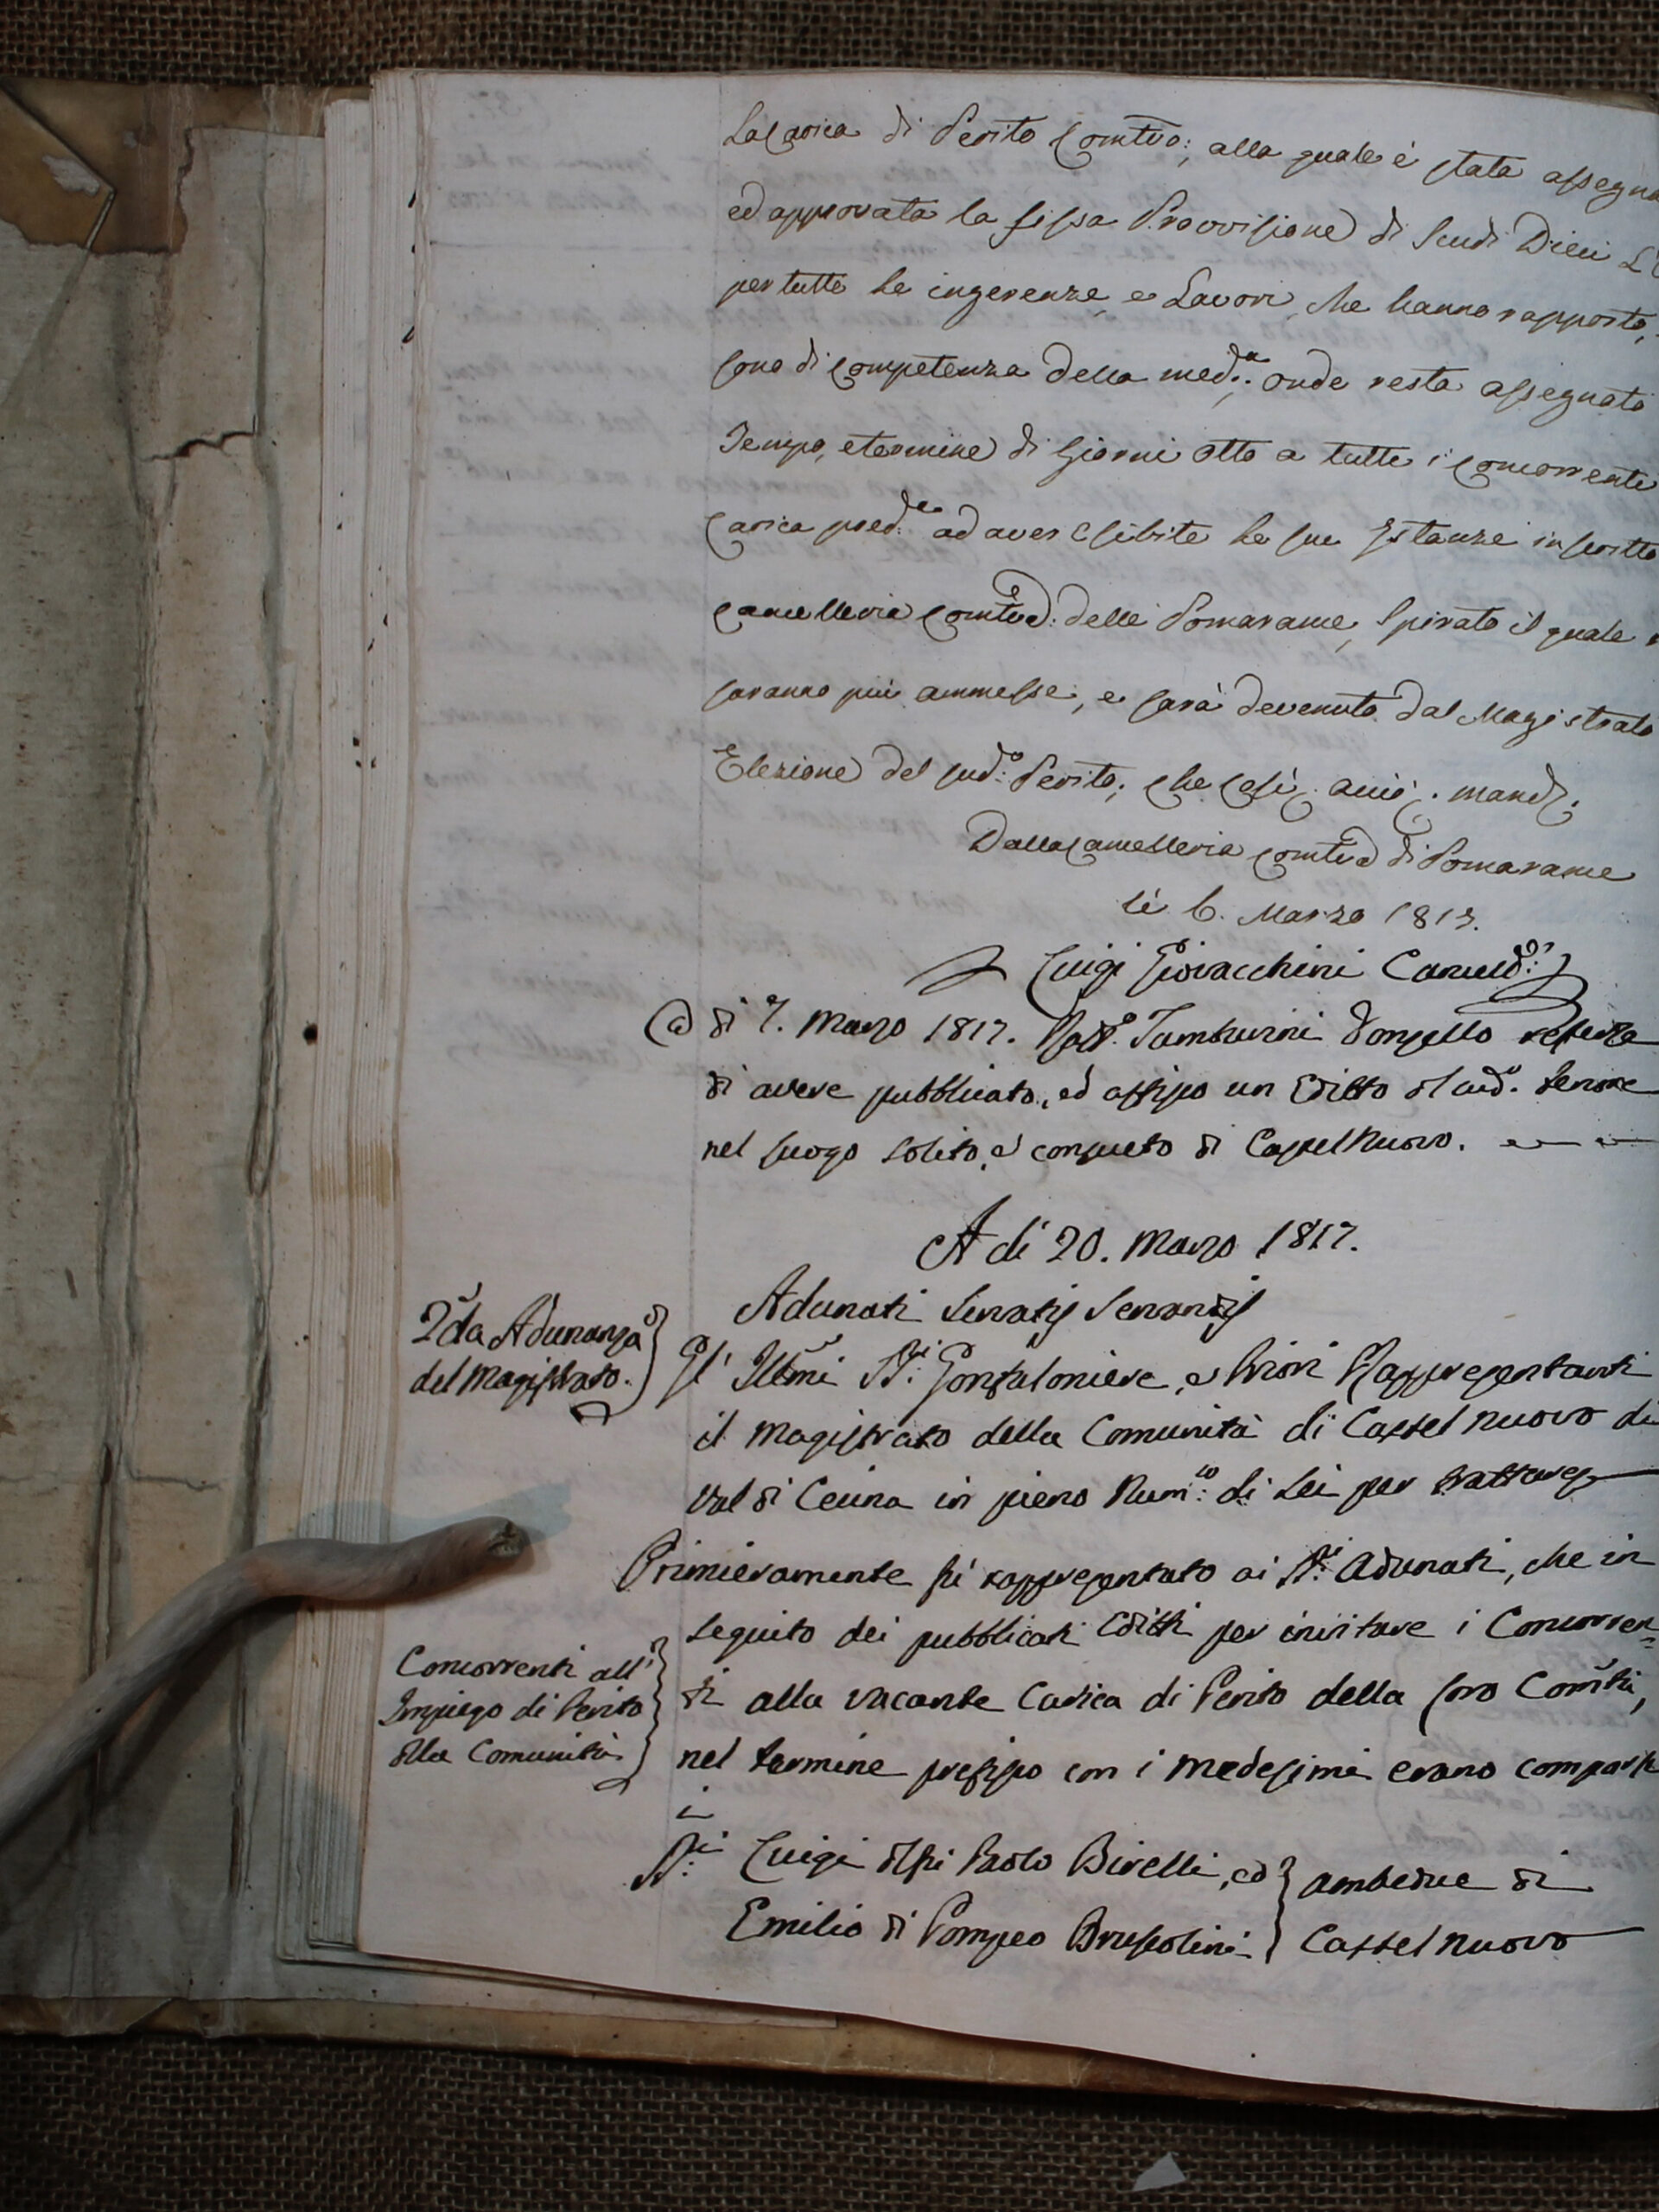 La Carica di Perito Comtvo:, alla quale è stata assegna
ed approvata la fissa Provvisione di Scudi Dieci
per tutte le ingerenze, e Lavori, che hanno rapporto,
sono di competenza della med:a onde resta assegnato
Tempo, e termine di Giorni otto a tutti i Concorrenti
Carica pred:a ad aver esibite le sue Istanze in scritto
Cancelleria Comtva: delle Pomarance, Spirato il quale
saranno più ammesse, e sarà devenuto dal Magistrato
Elezione del sud:o Perito; che così mand
Dalla Cancelleria Comtva di Pomarance
li 6. Marzo 1817.
Luigi Giovacchini Cancel:
A dì 7. Marzo 1817. Tamburini Donzello referse
di avere pubblicato, ed affisso un Editto
nel luogo solito, e consueto di Castelnuovo.
A di 20. Marzo 1817.
Adunati Servatis Servandis
2da Adunanza
del Magistrato.
Gl' Illmi SS:ri Gonfaloniere, e Priori Rappresentanti
il Magistrato della Comunità di Castel nuovo di
Val di Cecina in pieno Num:ro di Sei per trattare
Primieramente fù rappresentato ai SS:ri Adunati, che in
seguito dei pubblicati Editti per invitare i Concorren=
ti alla vacante Carica di Perito della loro Comtà,
nel termine prefisso con i medesimi erano comparsi
i
Concorrenti all'
Impiego di Perito
della Comunità
SS:ri Luigi Paolo Birelli, ed
Emilio di Pompeo Bruscolini
ambedue di
Castel nuovo